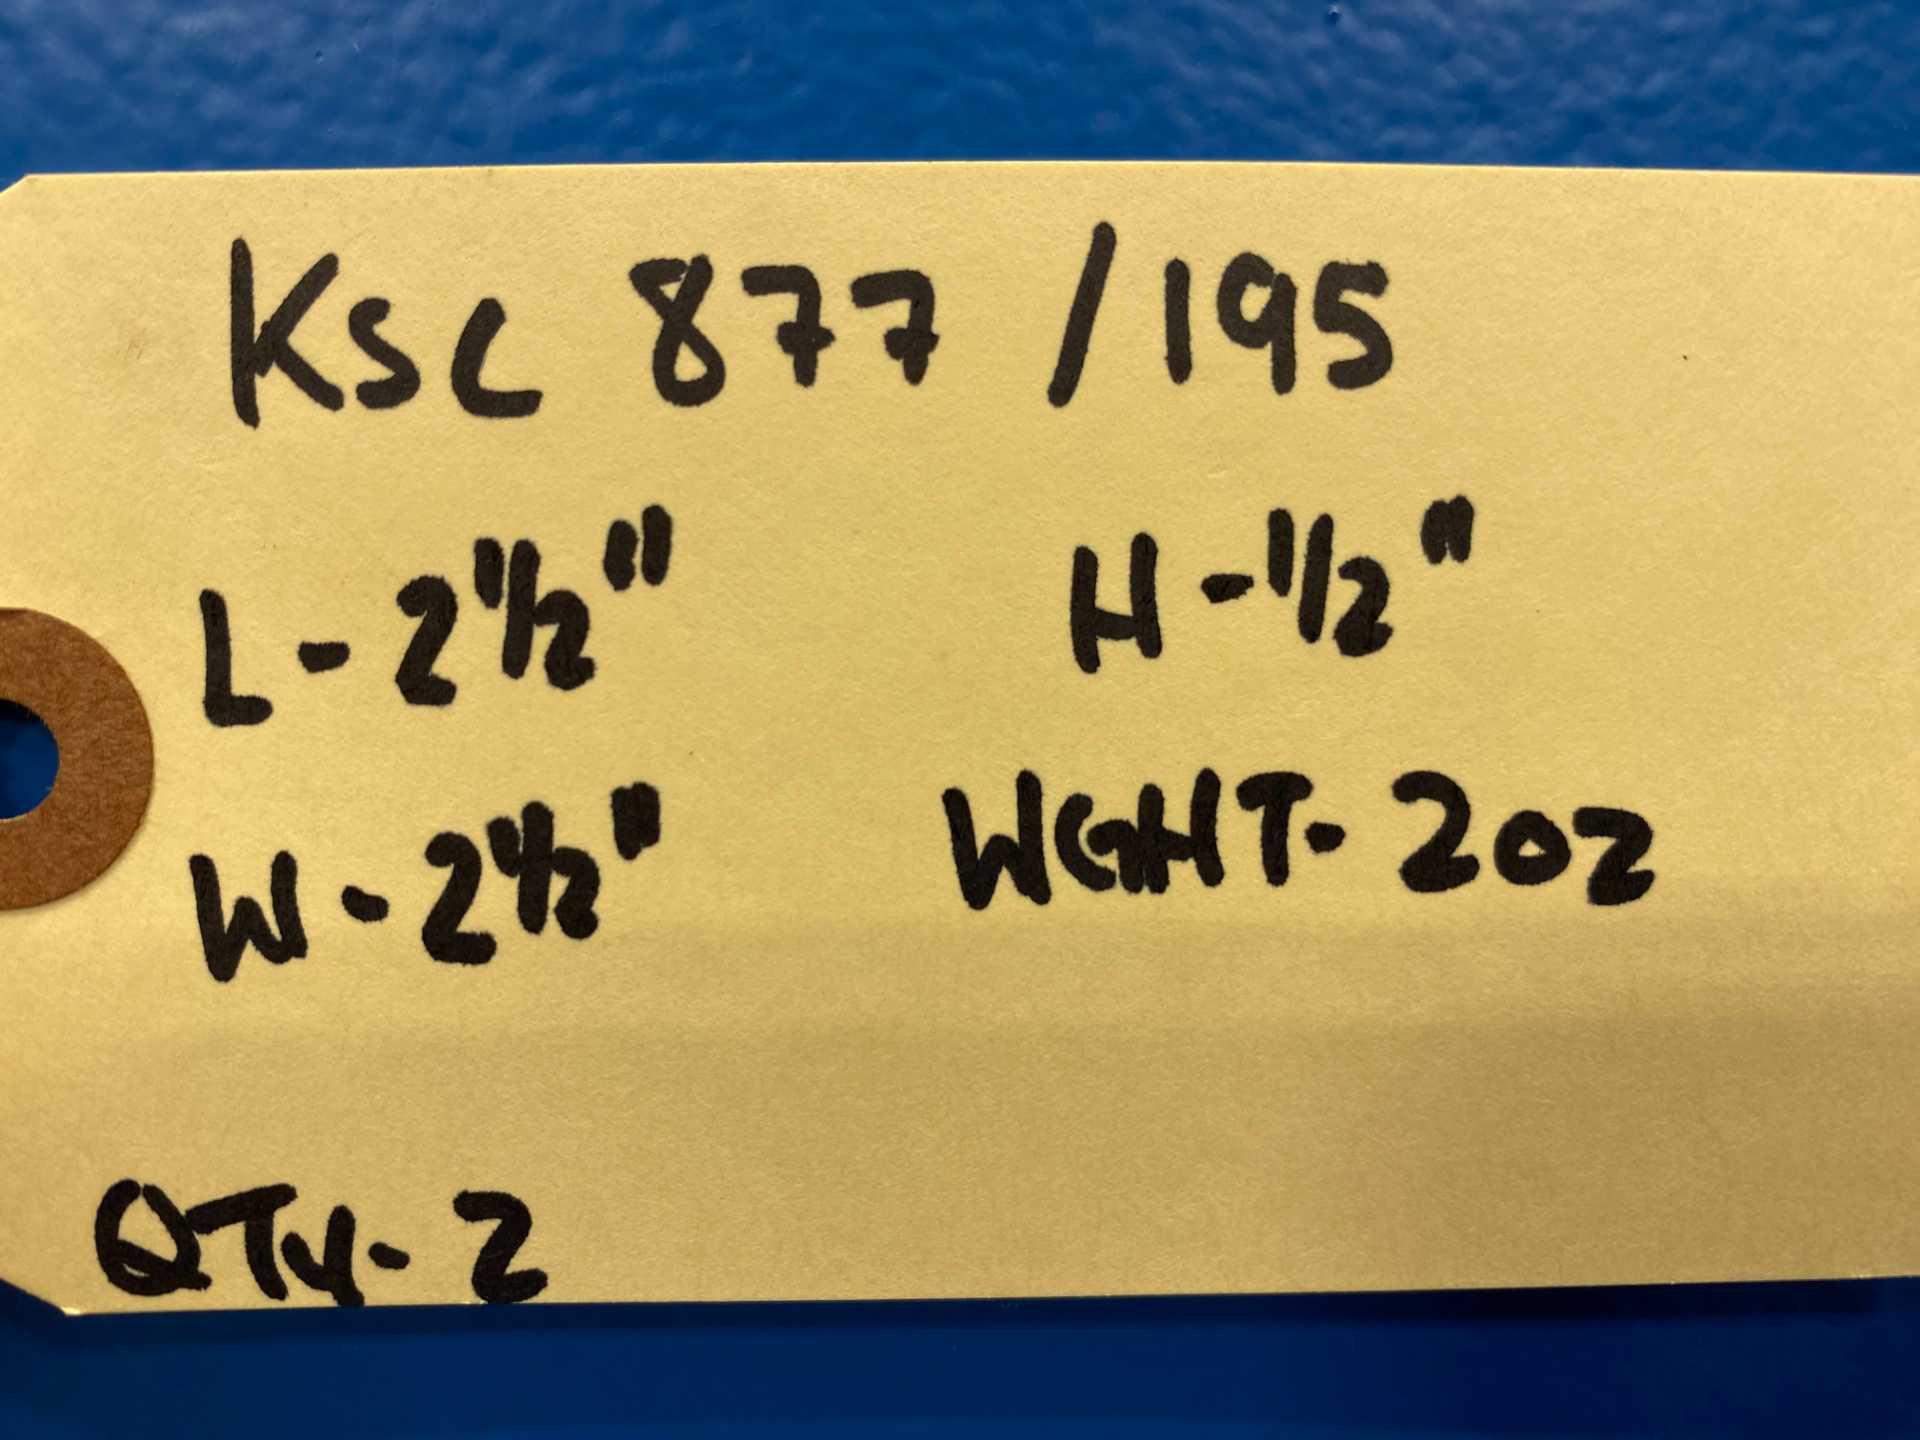 KSC 877 /195
L-2 1/2" H-1/2"
W-2 1/2" WGHT-2oz
QTY-2